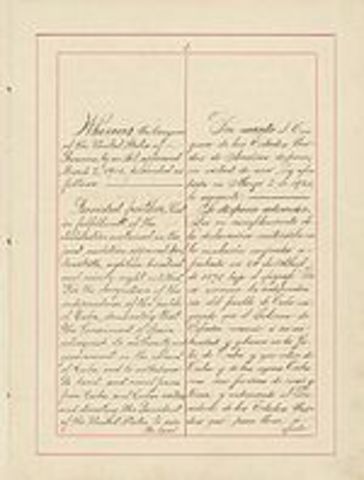 Whereas the Congress
of the United States of
America, by an Act approved
March 2, 1901, provided as
follows:
Provided further, That
in fulfillment of the
declaration contained in the
joint resolution approved
April twentieth, eighteen hundred
and ninety-eight, entitled
"For the recognition of the
independence of the people
of Cuba, demanding that
the Government of Spain
relinquish its authority and
government in the island
of Cuba, and to withdraw
its land and naval forces
from Cuba and Cuban waters,
and directing the President
of the United States to use
the land
Por cuanto el Con-
greso de los Estados Uni-
dos de América dispuso,
en virtud de una Ley apro-
bada en Marzo 2 de 1901,
lo siguiente:
Se dispone además,
Que en cumplimiento de
la declaración contenida en
la resolución conjunta a-
probada en 20 de Abril
de 1898
la independencia
del pueblo de Cuba
que el Gobierno de
España renuncie a su au-
toridad y gobierno en la Isla
de Cuba, y que retire de
Cuba y de las aguas Cuba-
nas sus fuerzas de mar y
tierra, y ordenando al Pre-
sidente de los Estados Uni-
dos que para llevar a
efecto